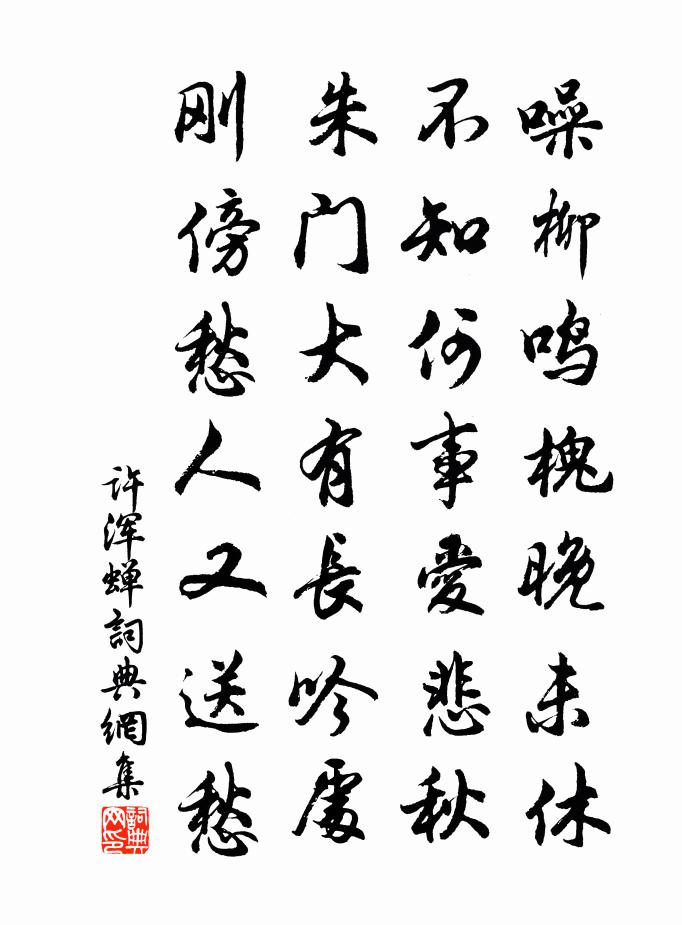 噪柳鸣槐晚未休
不知何事爱悲秋
朱门大有長吟處
刚傍愁人又送愁
许浑蝉詞典網集
詞典网印